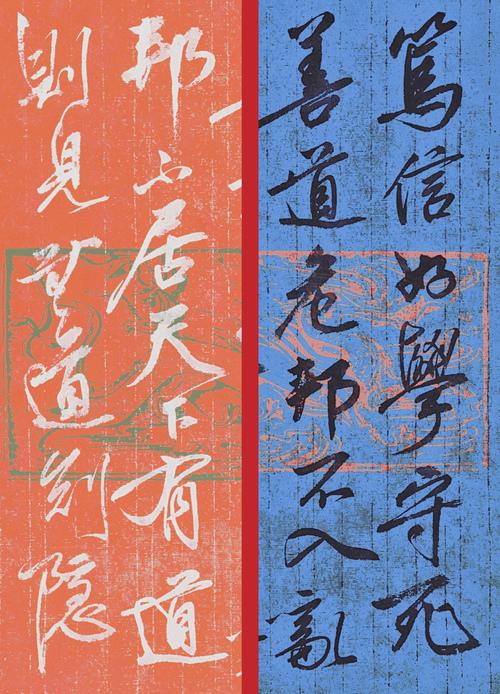 篤信好學守死
善道危邦不入亂
邦不居天下有道
則見無道則隱